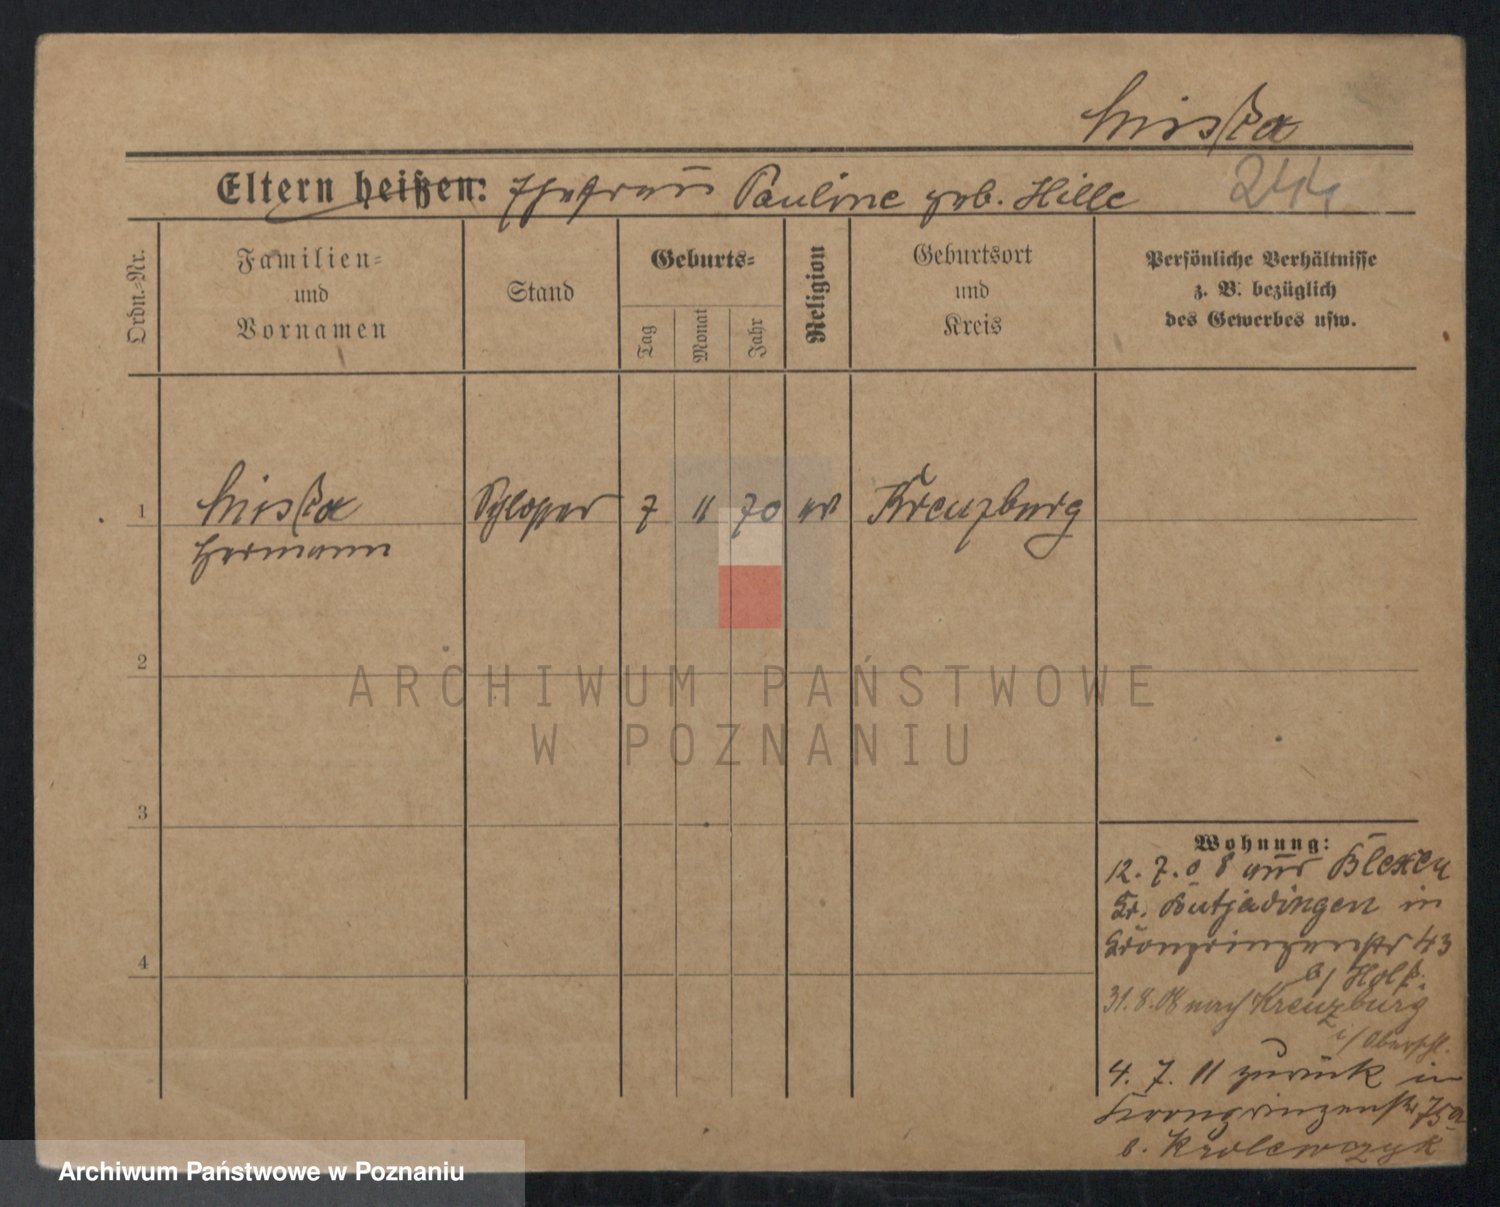 Eltern heißen: Ehefrau Pauline geb. Hille
244
Ordn.-Nr.
Familien-
und
Vornamen
Stand
Geburts-
Tag
Monat
Jahr
Religion
Geburtsort
und
Kreis
Persönliche Verhältnisse
z. B. bezüglich
des Gewerbes usw.
1
Hermann
Schlosser
7
11
70
ev
Kreuzburg
2
3
4
Wohnung:
12. 7. 08 aus Blexen
Kr. Butjadingen in
Kronprinzenstr 43
b/
31. 8. 08 nach Kreuzburg
i/ Oberschl.
4. 7. 11 zurück in
Kronprinzenstr 75a
b. Krolewczyk
ARCHIWUM PAŃSTWOWE
W POZNANIU
Archiwum Państwowe w Poznaniu